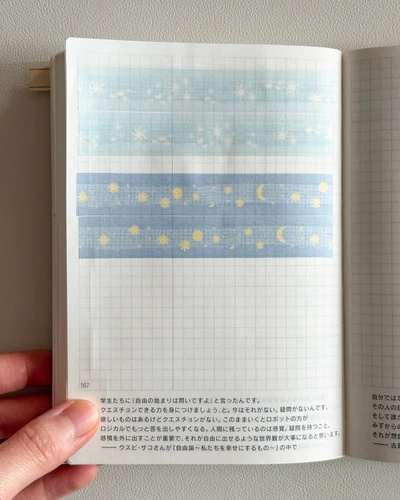 167
学生たちに「自由の始まりは問いですよ」と言ったんです。
クエスチョンできる力を身につけましょう、と。今はそれがない。疑問がないんです。
欲しいものはあるけどクエスチョンがない。このままいくとロボットの方が
ロジカルでもっと答を出しやすくなる。人間に残っているのは感覚。疑問を持つこと、
感情を外に出すことが重要で、それが自由に出せるような世界観が大事になると思います。
—— ウスビ・サコさんが『自由論〜私たちを幸せにするもの〜』の中で
自分では
その人の
そして誰か
みずからの
それが想
—— 古